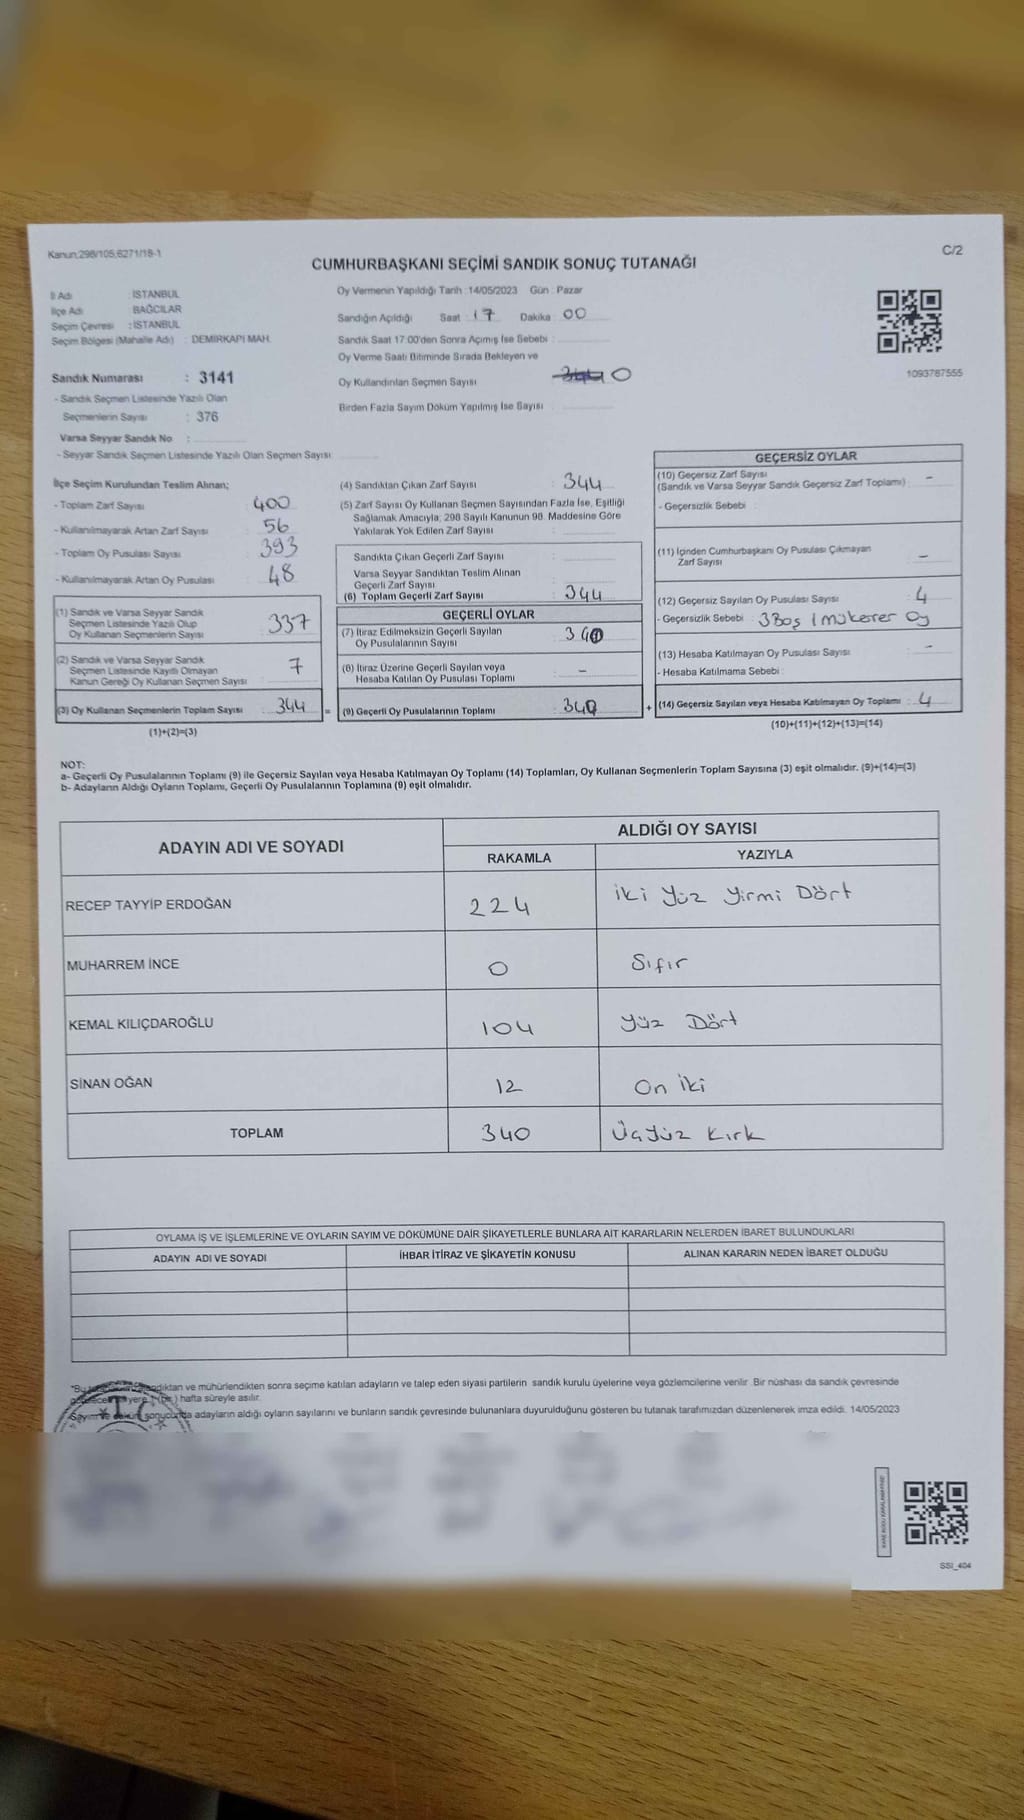 Kanun;298/105;6271/18-1
C/2
CUMHURBAŞKANI SEÇİMİ SANDIK SONUÇ TUTANAĞI
İl Adı : İSTANBUL
İlçe Adı : BAĞCILAR
Seçim Çevresi : İSTANBUL
Seçim Bölgesi (Mahalle Adı) : DEMİRKAPI MAH.
Sandık Numarası : 3141
- Sandık Seçmen Listesinde Yazılı Olan
Seçmenlerin Sayısı : 376
Varsa Seyyar Sandık No :
- Seyyar Sandık Seçmen Listesinde Yazılı Olan Seçmen Sayısı
Oy Vermenin Yapıldığı Tarih :14/05/2023 Gün : Pazar
Sandığın Açıldığı Saat : 17 Dakika : 00
Sandık Saat 17:00'den Sonra Açımış İse Sebebi :
Oy Verme Saati Bitiminde Sırada Bekleyen ve
Oy Kullandırılan Seçmen Sayısı 0
Birden Fazla Sayım Döküm Yapılmış İse Sayısı :
1093787555
İlçe Seçim Kurulundan Teslim Alınan;
- Toplam Zarf Sayısı : 400
- Kullanılmayarak Artan Zarf Sayısı : 56
- Toplam Oy Pusulası Sayısı : 393
- Kullanılmayarak Artan Oy Pusulası : 48
(1) Sandık ve Varsa Seyyar Sandık
Seçmen Listesinde Yazılı Olup
Oy Kullanan Seçmenlerin Sayısı 337
(2) Sandık ve Varsa Seyyar Sandık
Seçmen Listesinde Kayıtlı Olmayan
Kanun Gereği Oy Kullanan Seçmen Sayısı 7
(3) Oy Kullanan Seçmenlerin Toplam Sayısı : 344 =
(1)+(2)=(3)
(4) Sandıktan Çıkan Zarf Sayısı : 344
(5) Zarf Sayısı Oy Kullanan Seçmen Sayısından Fazla İse, Eşitliği
Sağlamak Amacıyla; 298 Sayılı Kanunun 98. Maddesine Göre
Yakılarak Yok Edilen Zarf Sayısı :
Sandıkta Çıkan Geçerli Zarf Sayısı :
Varsa Seyyar Sandıktan Teslim Alınan
Geçerli Zarf Sayısı :
(6) Toplam Geçerli Zarf Sayısı : 344
GEÇERLİ OYLAR
(7) İtiraz Edilmeksizin Geçerli Sayılan
Oy Pusulalarının Sayısı : 340
(8) İtiraz Üzerine Geçerli Sayılan veya
Hesaba Katılan Oy Pusulası Toplamı : -
(9) Geçerli Oy Pusulalarının Toplamı : 340 +
GEÇERSİZ OYLAR
(10) Geçersiz Zarf Sayısı
(Sandık ve Varsa Seyyar Sandık Geçersiz Zarf Toplamı) : -
- Geçersizlik Sebebi :
(11) İçinden Cumhurbaşkanı Oy Pusulası Çıkmayan
Zarf Sayısı : -
(12) Geçersiz Sayılan Oy Pusulası Sayısı : 4
- Geçersizlik Sebebi : 3 Boş 1 mükerrer Oy
(13) Hesaba Katılmayan Oy Pusulası Sayısı : -
- Hesaba Katılmama Sebebi :
(14) Geçersiz Sayılan veya Hesaba Katılmayan Oy Toplamı : 4
(10)+(11)+(12)+(13)=(14)
NOT:
a- Geçerli Oy Pusulalarının Toplamı (9) ile Geçersiz Sayılan veya Hesaba Katılmayan Oy Toplamı (14) Toplamları, Oy Kullanan Seçmenlerin Toplam Sayısına (3) eşit olmalıdır. (9)+(14)=(3)
b- Adayların Aldığı Oyların Toplamı, Geçerli Oy Pusulalarının Toplamına (9) eşit olmalıdır.
ADAYIN ADI VE SOYADI ALDIĞI OY SAYISI
RAKAMLA YAZIYLA
RECEP TAYYİP ERDOĞAN 224 iki Yüz Yirmi Dört
MUHARREM İNCE 0 Sıfır
KEMAL KILIÇDAROĞLU 104 yüz Dört
SİNAN OĞAN 12 On iki
TOPLAM 340 Üçyüz Kırk
OYLAMA İŞ VE İŞLEMLERİNE VE OYLARIN SAYIM VE DÖKÜMÜNE DAİR ŞİKAYETLERLE BUNLARA AİT KARARLARIN NELERDEN İBARET BULUNDUKLARI
ADAYIN ADI VE SOYADI İHBAR İTİRAZ VE ŞİKAYETİN KONUSU ALINAN KARARIN NEDEN İBARET OLDUĞU
"Bu ve mühürlendikten sonra seçime katılan adayların ve talep eden siyasi partilerin sandık kurulu üyelerine veya gözlemcilerine verilir. Bir nüshası da sandık çevresinde
yere 1 (bir) hafta süreyle asılır.
Sayım ve döküm sonucunda adayların aldığı oyların sayılarını ve bunların sandık çevresinde bulunanlara duyurulduğunu gösteren bu tutanak tarafımızdan düzenlenerek imza edildi. 14/05/2023
T.C.
SSI_404